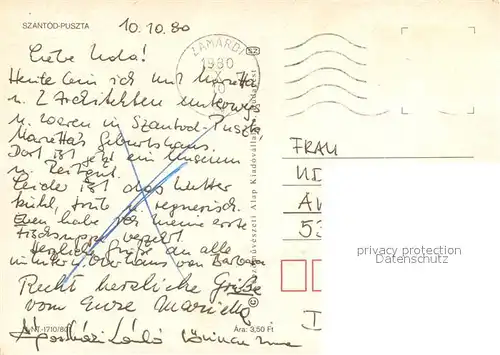 SZÁNTÓD-PUSZTA
10.10.80
Liebe
Heute bin ich mit Marietta
u. 2 Architekten unterwegs
u. waren in Szantod-Puszta
Marietta's Geburtshaus.
Dort ist jetzt ein Museum
u. Reitgut.
Leider ist das Wetter
kühl, trüb u. regnerisch.
Eben habe ich meine erste
Fischsuppe verzehrt.
Herzliche Grüße an alle
von Barbara
Recht herzliche Grüße
von Eure
László
ZAMÁRDI
1980
X
10
Képzőművészeti Alap Kiadóvállalata, Budapest
Ára: 3,50 Ft
FRAU
53
privacy protection
AK-ansichtskarten.de